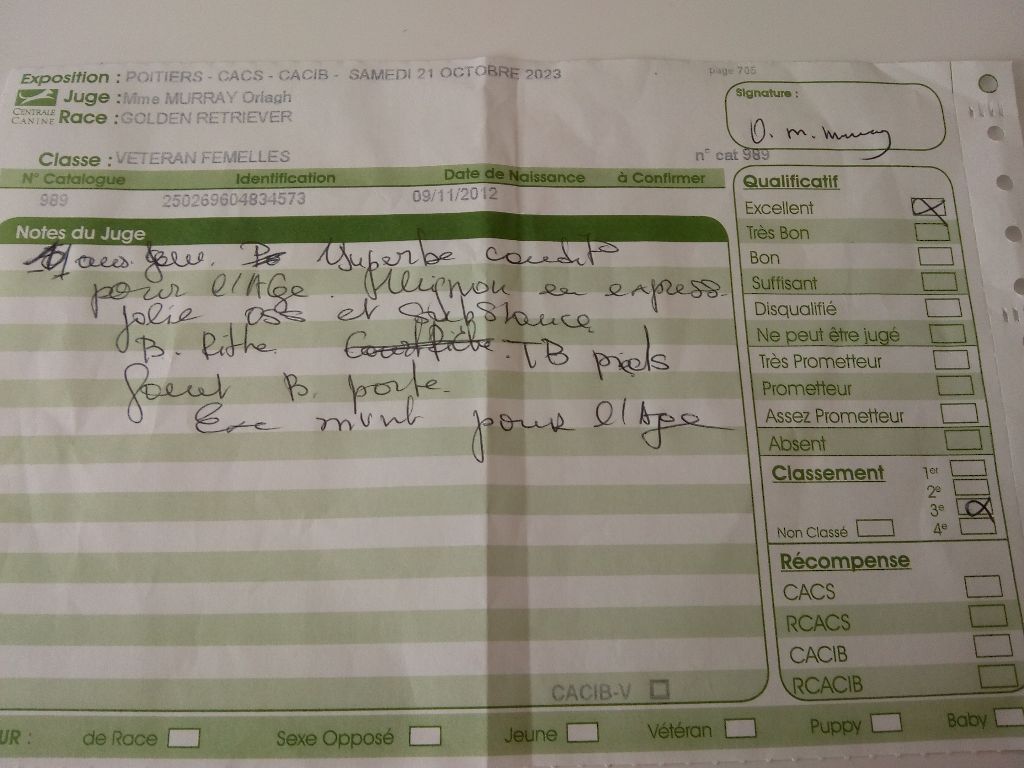 Exposition : POITIERS - CACS - CACIB - SAMEDI 21 OCTOBRE 2023
page 705
Juge : Mme MURRAY Orlagh
CENTRALE CANINE
Race : GOLDEN RETRIEVER
Signature :
O. m. Murray
Classe : VETERAN FEMELLES
n° cat 989
N° Catalogue Identification Date de Naissance à Confirmer
989 250269604834573 09/11/2012
Notes du Juge
ans Superbe condit
pour l'AGe. Mignon en express
jolie oss et Substance
B. TB pieds
B. porte
Exc mvnt pour l'Age
CACIB-V
Qualificatif
Excellent
Très Bon
Bon
Suffisant
Disqualifié
Ne peut être jugé
Très Prometteur
Prometteur
Assez Prometteur
Absent
Classement
1er
2e
3e
Non Classé 4e
Récompense
CACS
RCACS
CACIB
RCACIB
UR : de Race Sexe Opposé Jeune Vétéran Puppy Baby